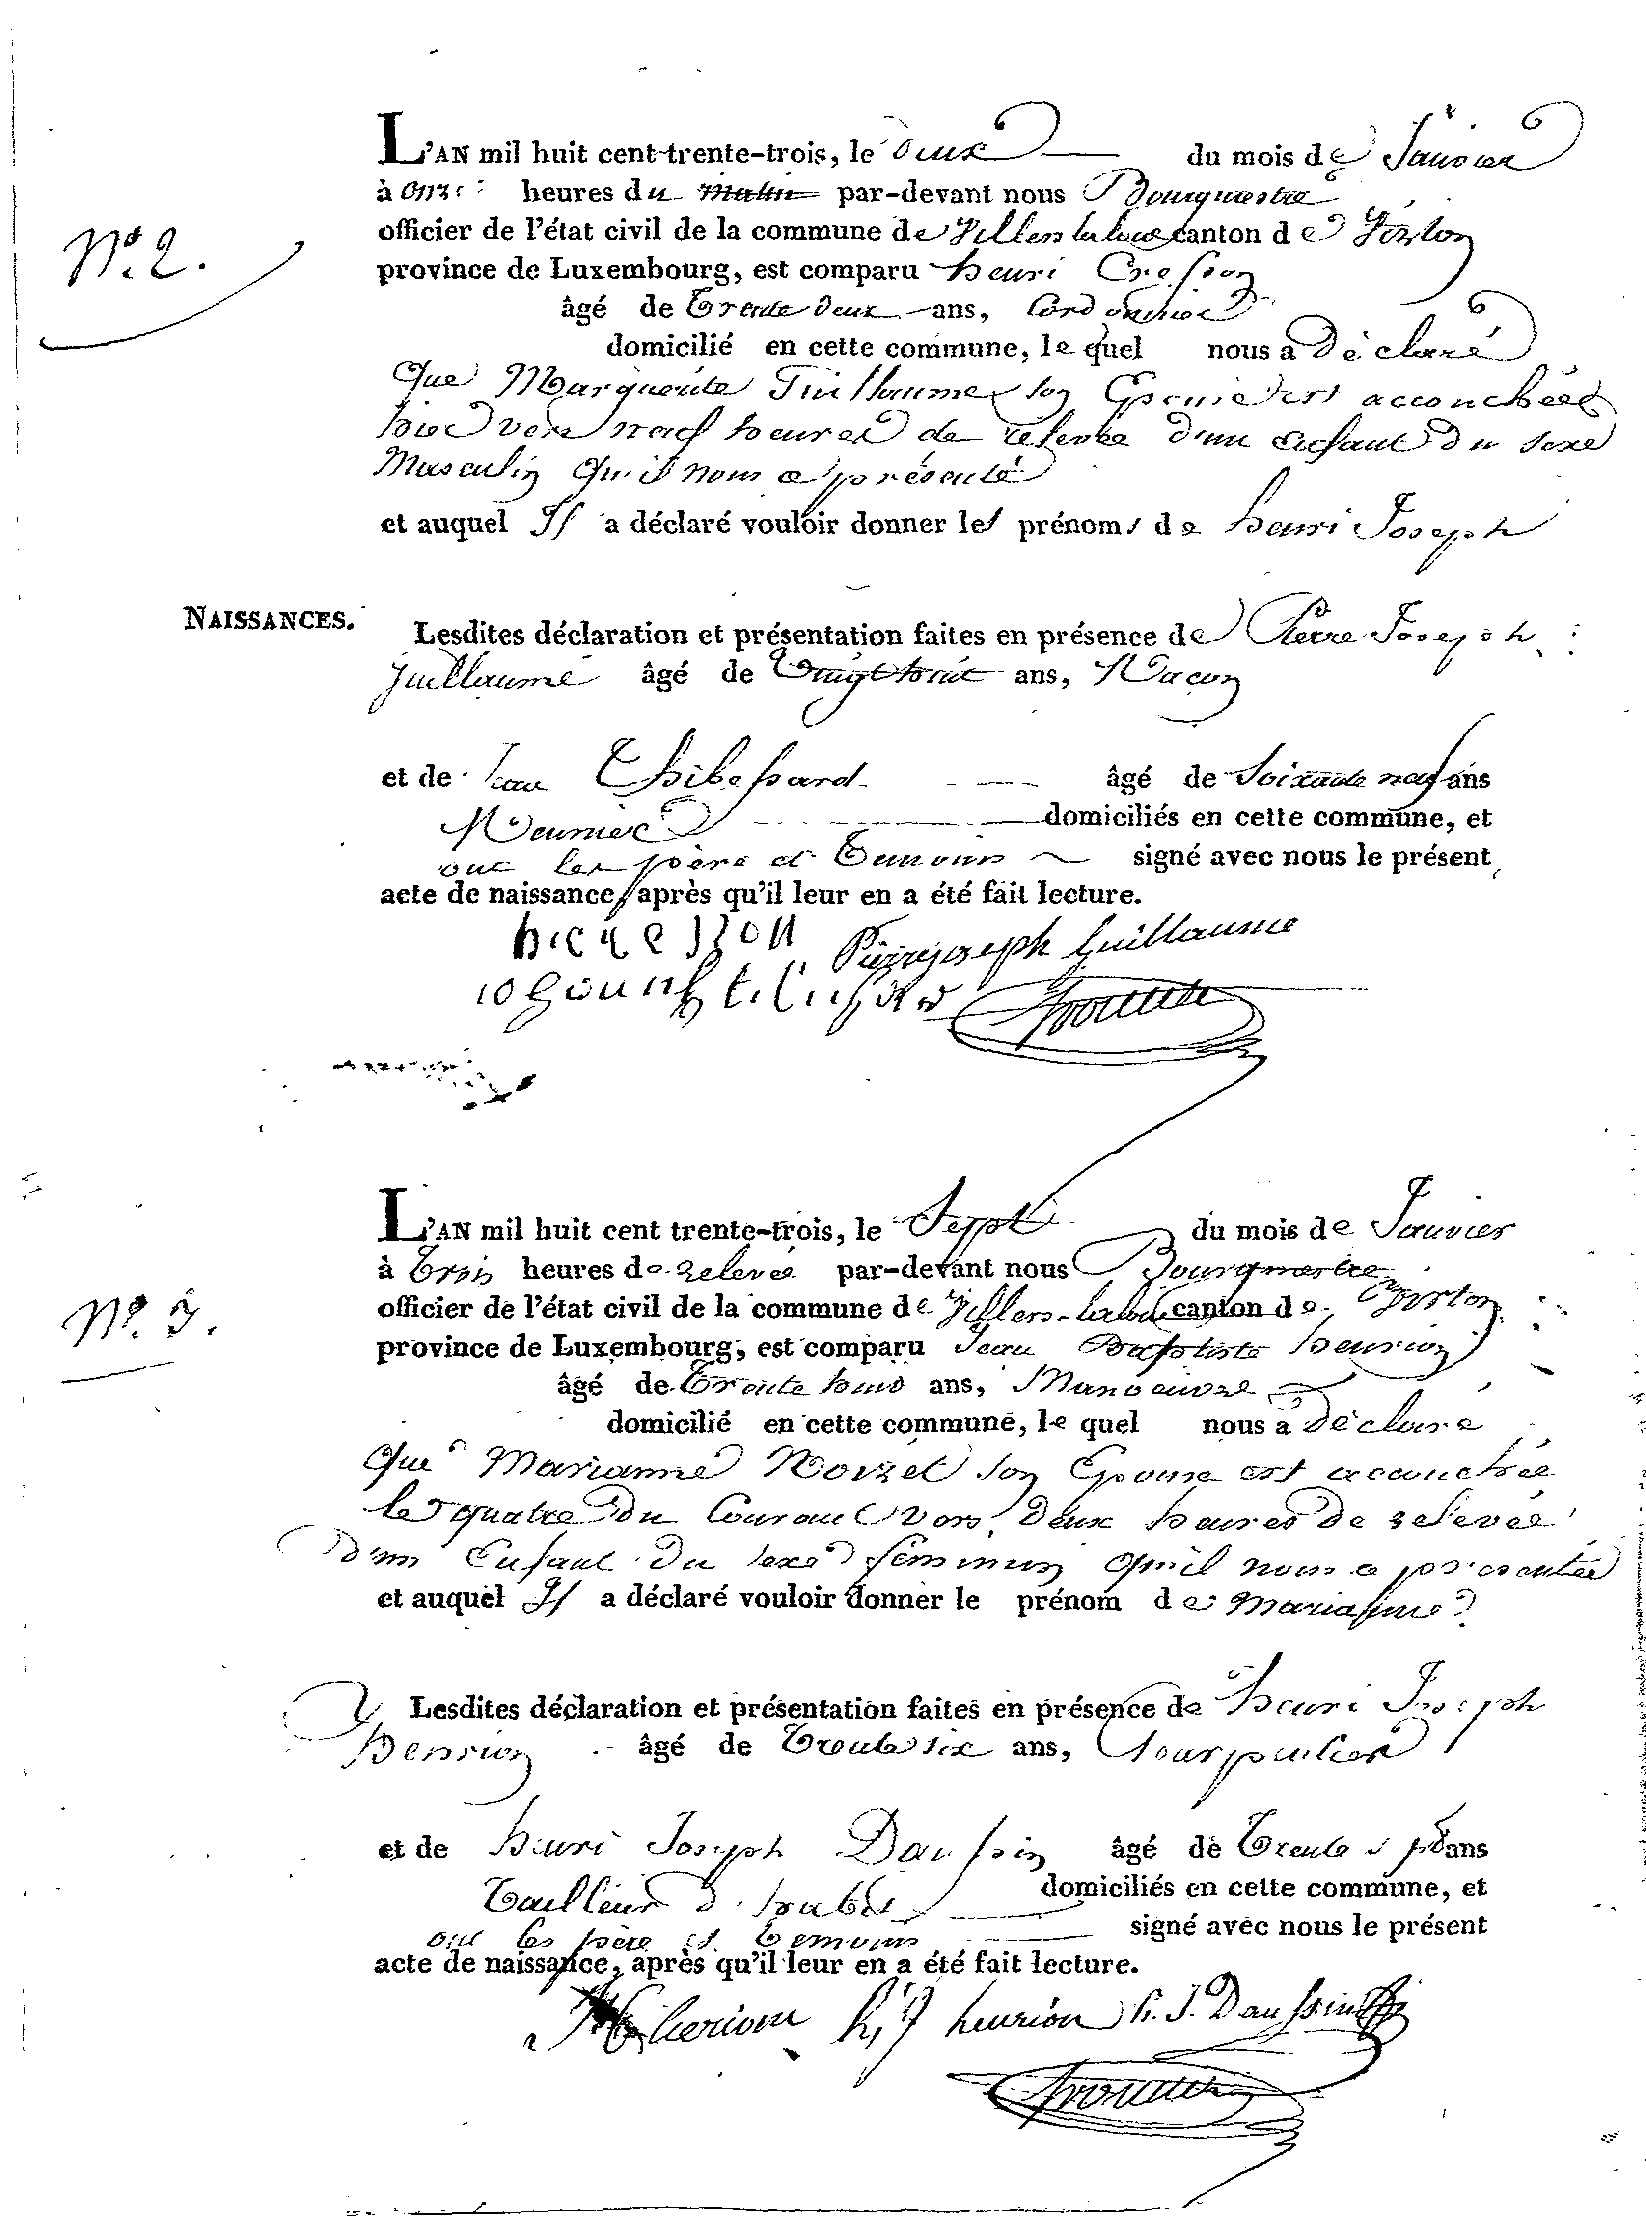 L'AN mil huit cent trente-trois, le deux du mois de Janvier
à onze heures du matin par-devant nous Bourgmestre
N.° 2. officier de l'état civil de la commune de Villers laloue canton de Virton
province de Luxembourg, est comparu henri Cresson
âgé de Trente deux ans, Cordonnier
domicilié en cette commune, le quel nous a Déclaré
Que Marguerite Guillaume son Epouse est accouchée
hier vers neuf heures de relevée d'un Enfant du sexe
Masculin qu'il nous a présenté
et auquel Il a déclaré vouloir donner les prénoms de henri Joseph
NAISSANCES. Lesdites déclaration et présentation faites en présence de Pierre Joseph
guillaume âgé de Vingt huit ans, Maçon
et de Jean Thibessard âgé de Soixante neuf ans
Meunier domiciliés en cette commune, et
ont les père et Temoins signé avec nous le présent
acte de naissance, après qu'il leur en a été fait lecture.
Pierrejoseph Guillaume
L'AN mil huit cent trente-trois, le Sept du mois de Janvier
à Trois heures de relevée par-devant nous Bourgmestre
N.° 3. officier de l'état civil de la commune de Villers-laloue canton de Virton
province de Luxembourg, est comparu Jean Baptiste henrion
âgé de Trente huit ans, Manoeuvre
domicilié en cette commune, le quel nous a Déclaré
Que Marianne Noizet son Epouse est accouchée
le quatre du Courant vers Deux heures de relevée
d'un Enfant du sexe feminin qu'il nous a presentée
et auquel Il a déclaré vouloir donner le prénom de Marianne
Lesdites déclaration et présentation faites en présence de henri Joseph
henrion âgé de Trente six ans, Charpentier
et de henri Joseph Daussin âgé de Trente sept ans
Tailleur d'habits domiciliés en cette commune, et
ont les père et Temoins signé avec nous le présent
acte de naissance, après qu'il leur en a été fait lecture.
henrion h, J henrion h. J. Daussin